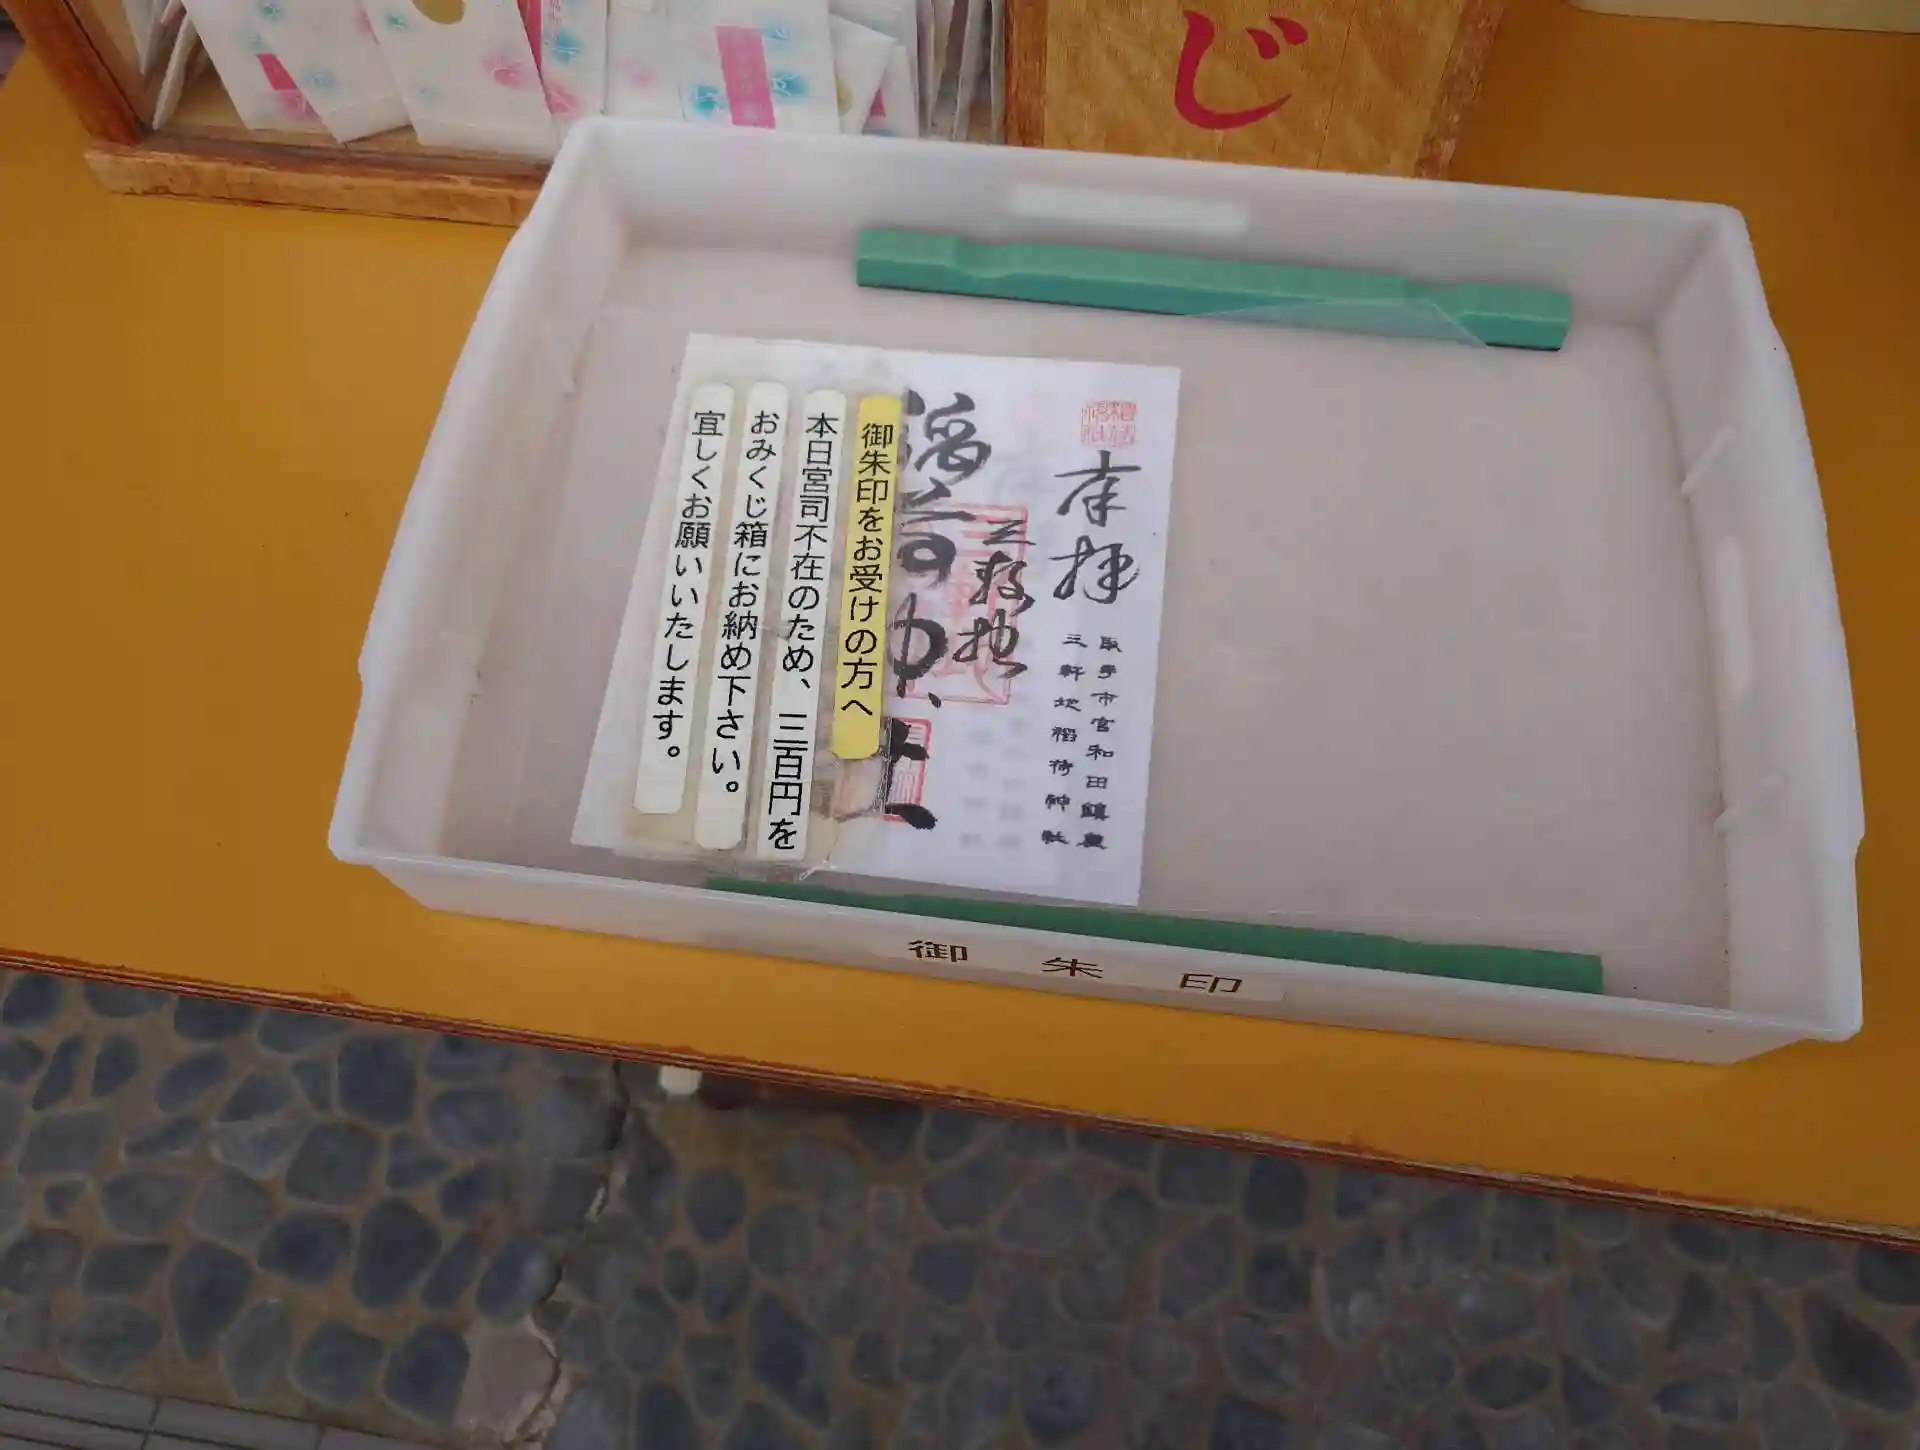 じ
御朱印をお受けの方へ
本日宮司不在のため、三百円を
おみくじ箱にお納め下さい。
宜しくお願いいたします。
奉拝
取手市宮和田鎮座
三軒地稲荷神社
三軒地
稲荷
御朱印